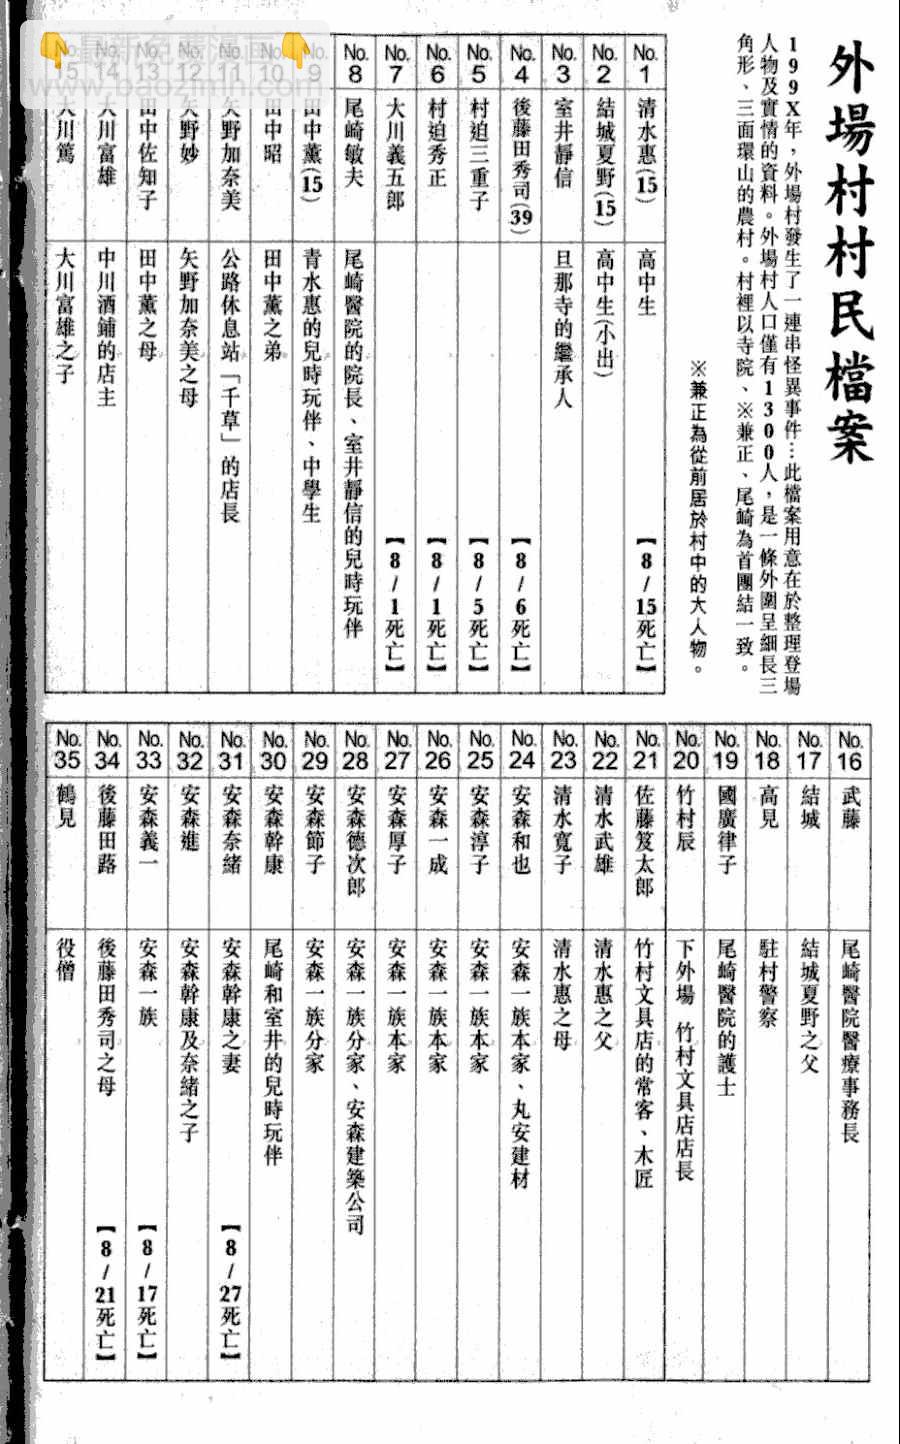 外場村村民檔案
199X年，外場村發生了一連串怪異事件…此檔案用意在於整理登場
人物及實情的資料。外場村人口僅有1300人，是一條外圍呈細長三
角形、三面環山的農村。村裡以寺院、※兼正、尾崎為首團結一致。
※兼正為從前居於村中的大人物。
No.1 清水惠(15) 高中生 【8/15死亡】
No.2 結城夏野(15) 高中生(小出)
No.3 室井靜信 旦那寺的繼承人
No.4 後藤田秀司(39) 【8/6死亡】
No.5 村迫三重子 【8/5死亡】
No.6 村迫秀正 【8/1死亡】
No.7 大川義五郎 【8/1死亡】
No.8 尾崎敏夫 尾崎醫院的院長、室井靜信的兒時玩伴
No.9 田中薰(15) 青水惠的兒時玩伴、中學生
No.10 田中昭 田中薰之弟
No.11 矢野加奈美 公路休息站「千草」的店長
No.12 矢野妙 矢野加奈美之母
No.13 田中佐知子 田中薰之母
No.14 大川富雄 中川酒鋪的店主
No.15 大川篤 大川富雄之子
No.16 武藤 尾崎醫院醫療事務長
No.17 結城 結城夏野之父
No.18 高見 駐村警察
No.19 國廣律子 尾崎醫院的護士
No.20 竹村辰 下外場 竹村文具店店長
No.21 佐藤笈太郎 竹村文具店的常客、木匠
No.22 清水武雄 清水惠之父
No.23 清水寬子 清水惠之母
No.24 安森和也 安森一族本家、丸安建材
No.25 安森淳子 安森一族本家
No.26 安森一成 安森一族本家
No.27 安森厚子 安森一族本家
No.28 安森德次郎 安森一族分家、安森建築公司
No.29 安森節子 安森一族分家
No.30 安森幹康 尾崎和室井的兒時玩伴
No.31 安森奈緒 安森幹康之妻 【8/27死亡】
No.32 安森進 安森幹康及奈緒之子
No.33 安森義一 安森一族 【8/17死亡】
No.34 後藤田蕗 後藤田秀司之母 【8/21死亡】
No.35 鶴見 役僧
www.baozimh.com